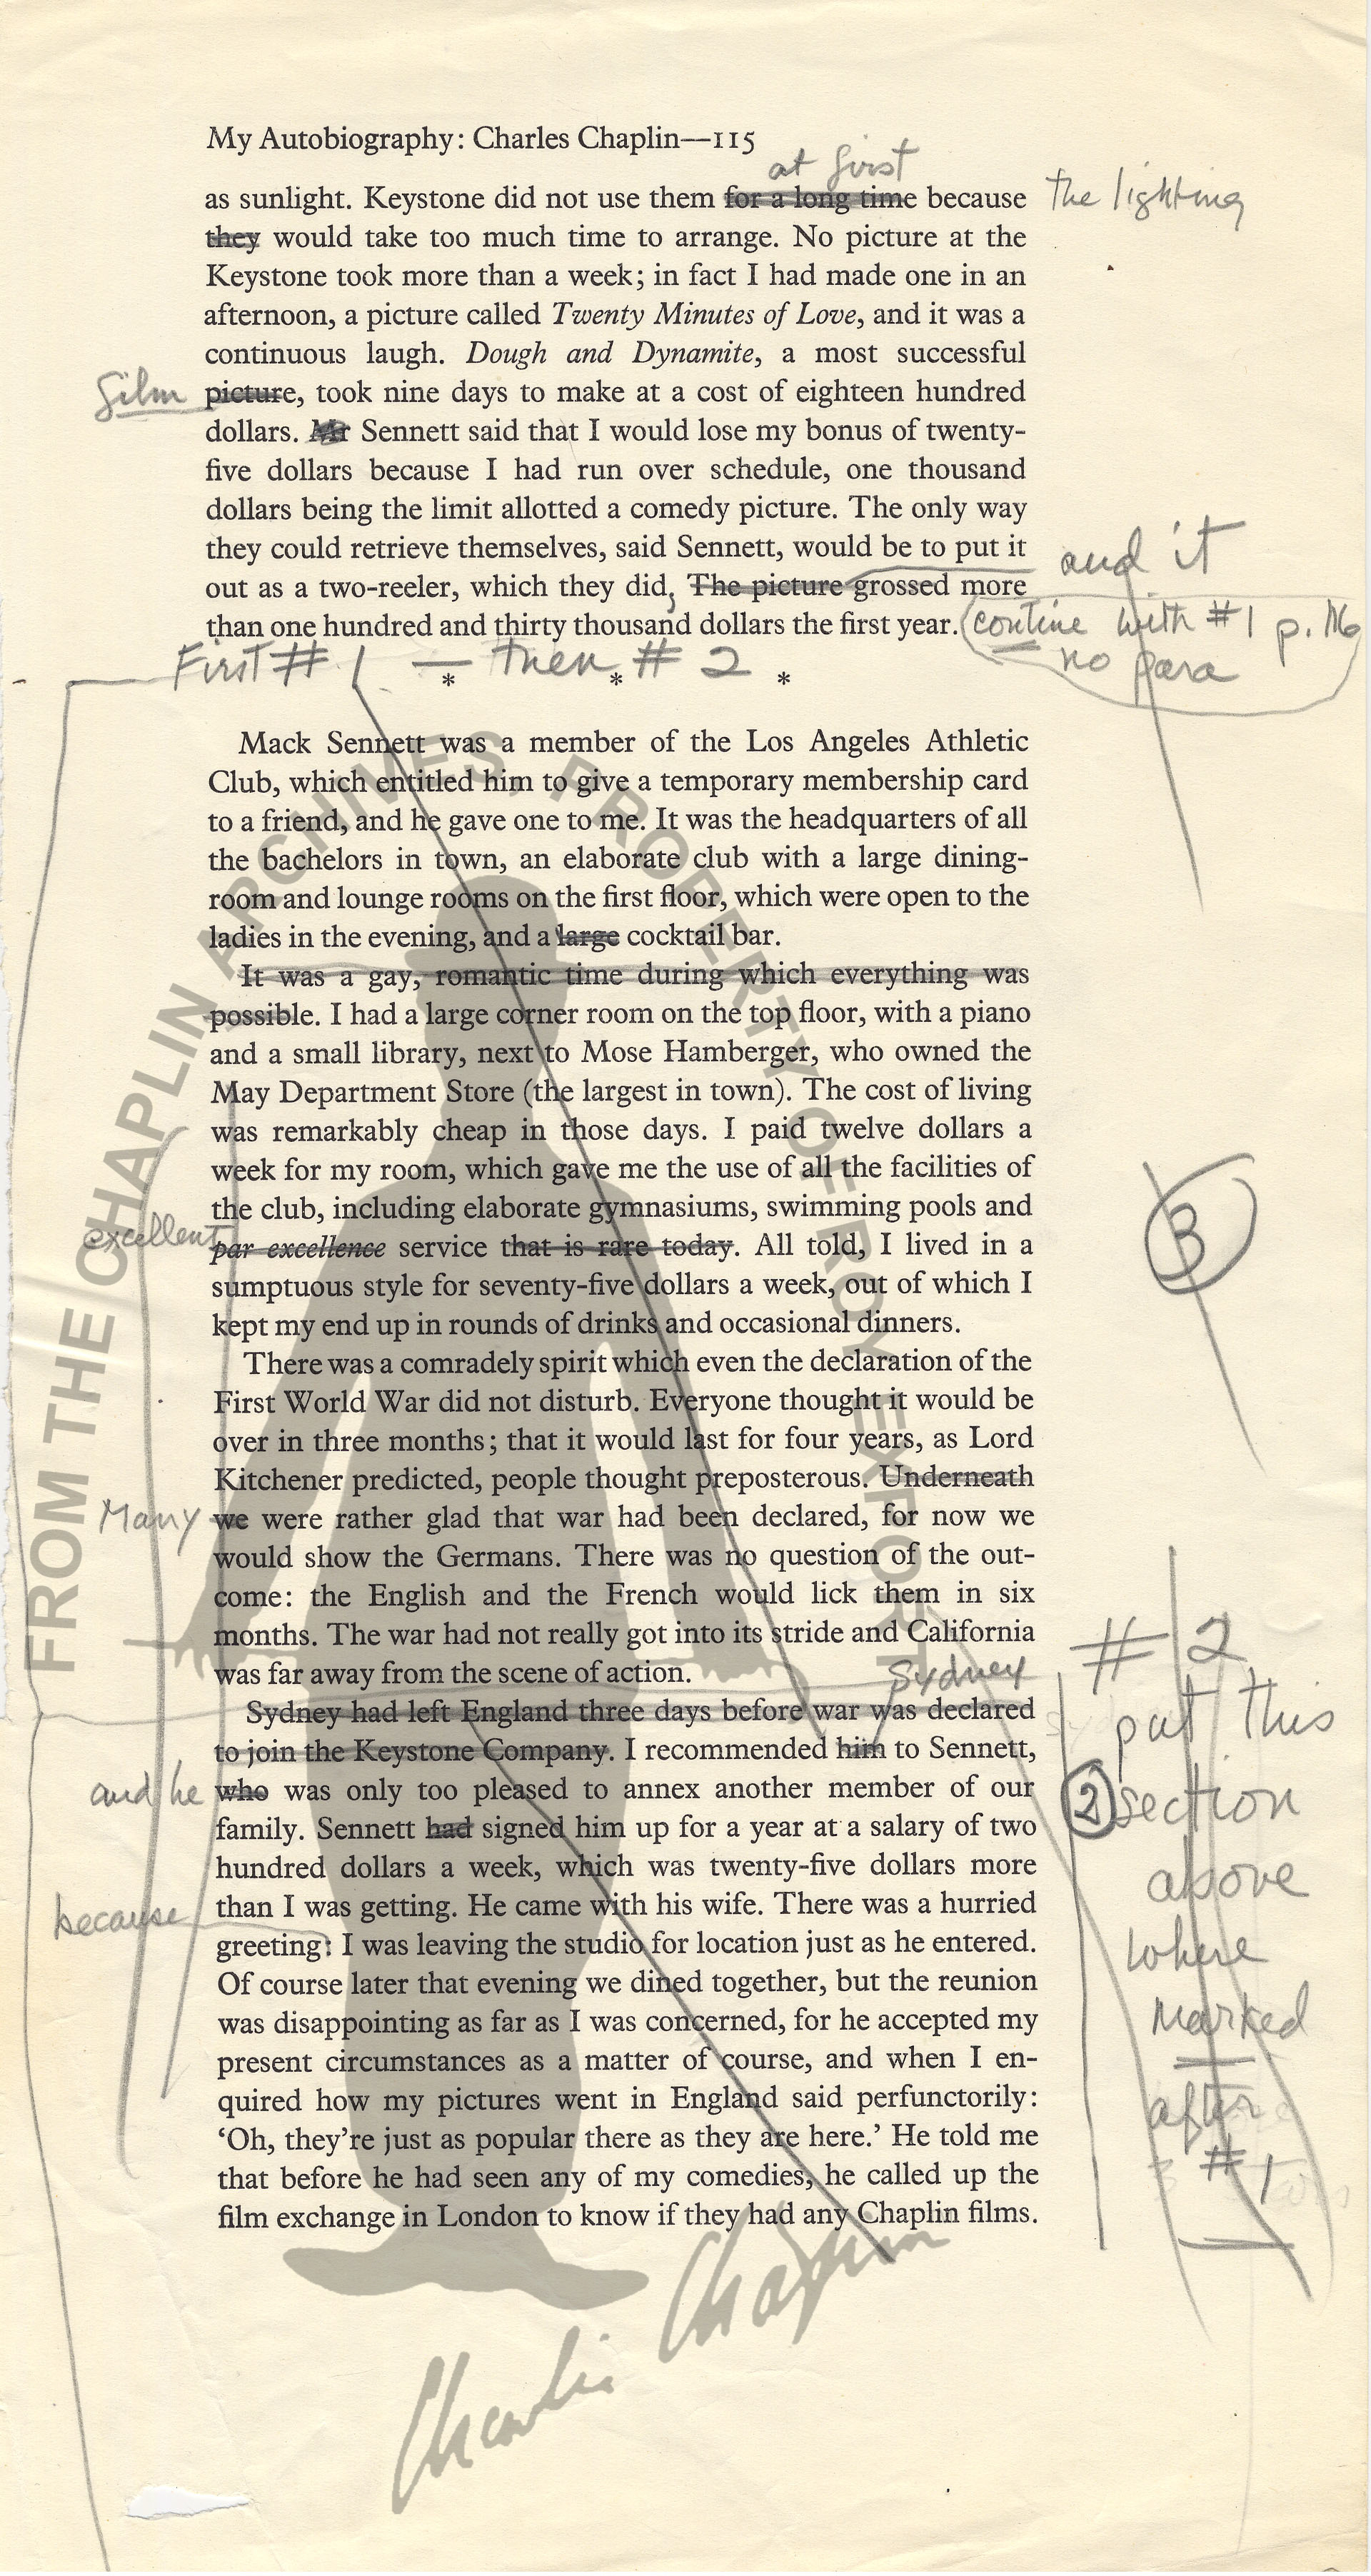 My Autobiography: Charles Chaplin—115
at first
as sunlight. Keystone did not use them for a long time because the lighting
they would take too much time to arrange. No picture at the
Keystone took more than a week; in fact I had made one in an
afternoon, a picture called Twenty Minutes of Love, and it was a
continuous laugh. Dough and Dynamite, a most successful
film picture, took nine days to make at a cost of eighteen hundred
dollars. Mr Sennett said that I would lose my bonus of twenty-
five dollars because I had run over schedule, one thousand
dollars being the limit allotted a comedy picture. The only way
they could retrieve themselves, said Sennett, would be to put it and it
out as a two-reeler, which they did, The picture grossed more
than one hundred and thirty thousand dollars the first year. contine with #1 p. 116
no para
First # 1 — then # 2
* * *
Mack Sennett was a member of the Los Angeles Athletic
Club, which entitled him to give a temporary membership card
to a friend, and he gave one to me. It was the headquarters of all
the bachelors in town, an elaborate club with a large dining-
room and lounge rooms on the first floor, which were open to the
ladies in the evening, and a large cocktail bar.
It was a gay, romantic time during which everything was
possible. I had a large corner room on the top floor, with a piano
and a small library, next to Mose Hamberger, who owned the
May Department Store (the largest in town). The cost of living
was remarkably cheap in those days. I paid twelve dollars a
week for my room, which gave me the use of all the facilities of
the club, including elaborate gymnasiums, swimming pools and
excellent par excellence service that is rare today. All told, I lived in a
3
sumptuous style for seventy-five dollars a week, out of which I
kept my end up in rounds of drinks and occasional dinners.
There was a comradely spirit which even the declaration of the
First World War did not disturb. Everyone thought it would be
over in three months; that it would last for four years, as Lord
Kitchener predicted, people thought preposterous. Underneath
Many we were rather glad that war had been declared, for now we
would show the Germans. There was no question of the out-
come: the English and the French would lick them in six
months. The war had not really got into its stride and California
was far away from the scene of action.
Sydney
Sydney had left England three days before war was declared
to join the Keystone Company. I recommended him to Sennett,
and he who was only too pleased to annex another member of our
family. Sennett had signed him up for a year at a salary of two
hundred dollars a week, which was twenty-five dollars more
than I was getting. He came with his wife. There was a hurried
because greeting: I was leaving the studio for location just as he entered.
Of course later that evening we dined together, but the reunion
was disappointing as far as I was concerned, for he accepted my
present circumstances as a matter of course, and when I en-
quired how my pictures went in England said perfunctorily:
‘Oh, they’re just as popular there as they are here.’ He told me
that before he had seen any of my comedies, he called up the
film exchange in London to know if they had any Chaplin films.
# 2
put this
2 section
above
where
marked
after
#1
FROM THE CHAPLIN ARCHIVES, PROPERTY OF ROY EXPORT
Charlie Chaplin